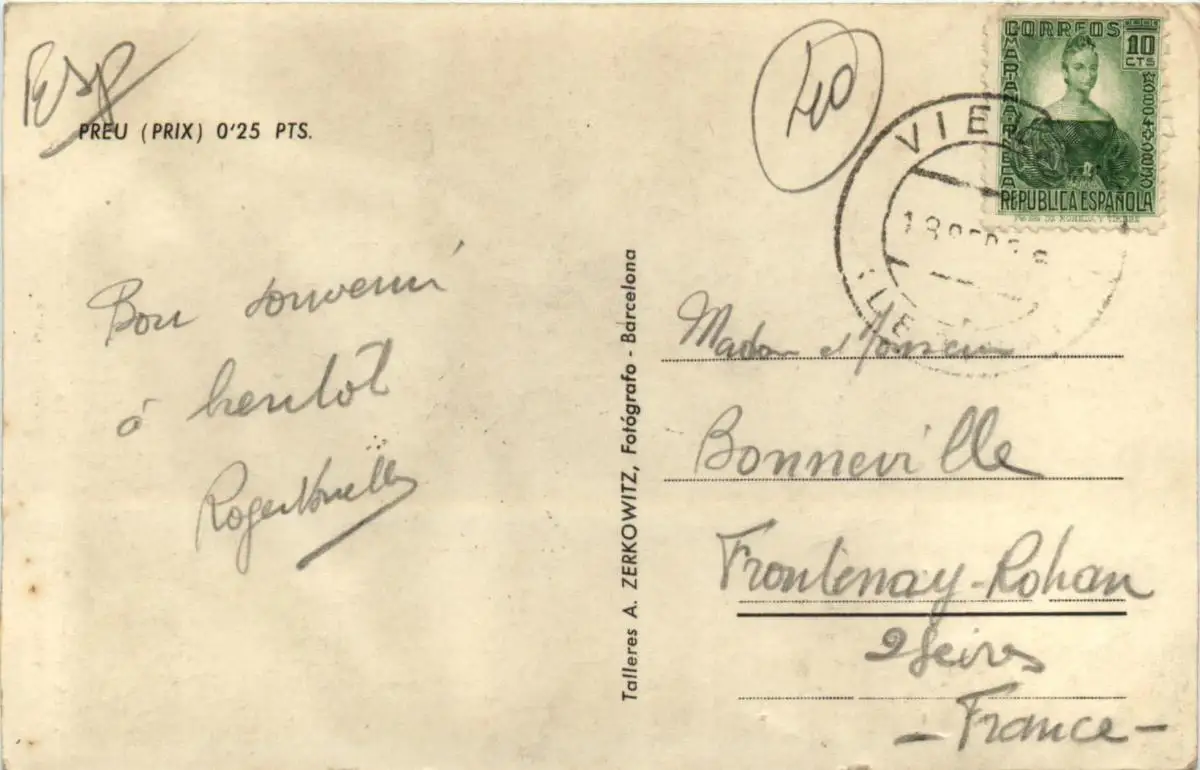 Esp
PREU (PRIX) 0'25 PTS.
Bon souvenir
à bientôt
Roger
Talleres A. ZERKOWITZ, Fotógrafo - Barcelona
40
CORREOS
10
CTS
MARIANA PINEDA
REPUBLICA ESPAÑOLA
VIE
Madame et Monsieur
Bonneville
Frontenay-Rohan
2 Sèvres
- France -